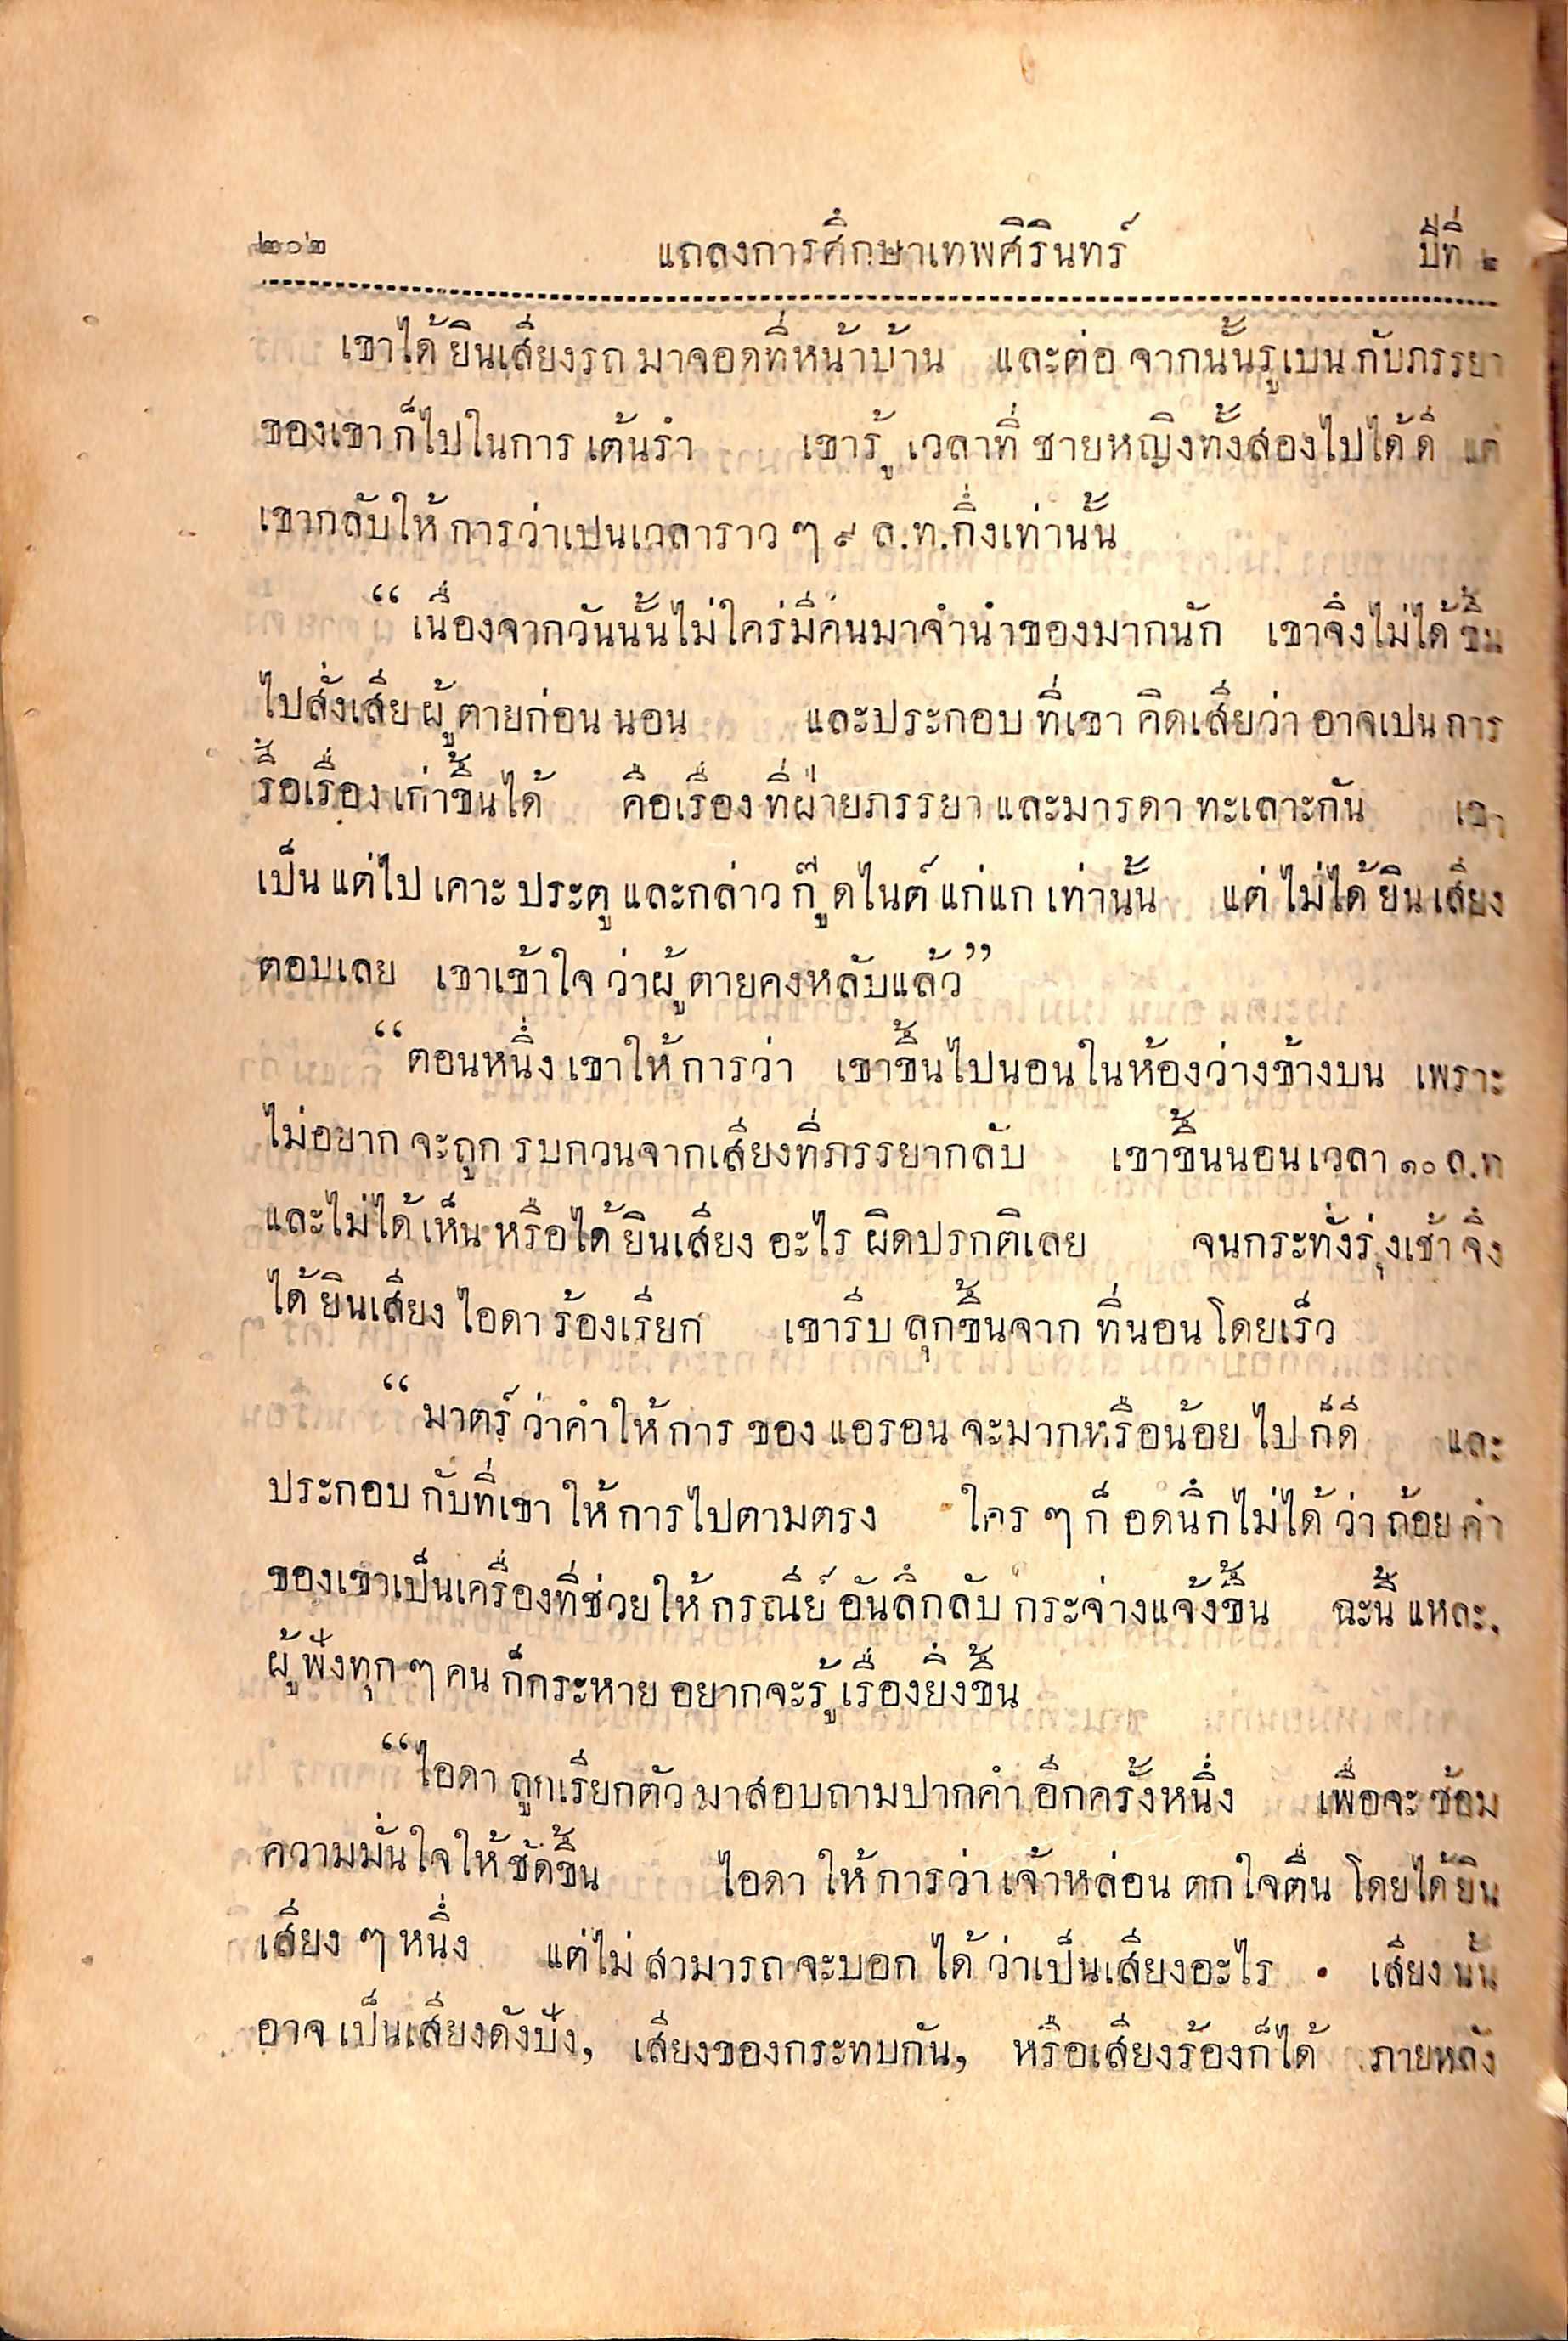 ๒๐๒ แถลงการศึกษาเทพศิรินทร์ ปีที่ ๒
เขาได้ยินเสียงรถมาจอดที่หน้าบ้าน และต่อจากนั้นรูเบนกับภรรยา
ของเขาก็ไปในการเต้นรำ เขารู้เวลาที่ชายหญิงทั้งสองไปได้ดี แต่
เขากลับให้การว่าเปนเวลาราว ๆ ๙ ล.ท.กึ่งเท่านั้น
“เนื่องจากวันนั้นไม่ใคร่มีคนมาจำนำของมากนัก เขาจึงไม่ได้ขึ้น
ไปสั่งเสียผู้ตายก่อนนอน และประกอบที่เขาคิดเสียว่าอาจเปนการ
รื้อเรื่องเก่าขึ้นได้ คือเรื่องที่ฝ่ายภรรยาและมารดาทะเลาะกัน เขา
เป็นแต่ไปเคาะประตูและกล่าวกู๊ดไนต์แก่แกเท่านั้น แต่ไม่ได้ยินเสียง
ตอบเลย เขาเข้าใจว่าผู้ตายคงหลับแล้ว”
“ตอนหนึ่งเขาให้การว่า เขาขึ้นไปนอนในห้องว่างข้างบน เพราะ
ไม่อยากจะถูกรบกวนจากเสียงที่ภรรยากลับ เขาขึ้นนอนเวลา ๑๐ ล.ท
และไม่ได้เห็นหรือได้ยินเสียงอะไรผิดปรกติเลย จนกระทั่งรุ่งเช้าจึง
ได้ยินเสียงไอดาร้องเรียก เขารีบลุกขึ้นจากที่นอนโดยเร็ว
“มาตร์ว่าคำให้การของแอรอนจะมากหรือน้อยไปก็ดี และ
ประกอบกับที่เขาให้การไปตามตรง ใคร ๆ ก็อดนึกไม่ได้ว่าถ้อยคำ
ของเขาเป็นเครื่องที่ช่วยให้กรณีย์อันลึกลับกระจ่างแจ้งขึ้น ฉะนี้แหละ
ผู้ฟังทุก ๆ คนก็กระหายอยากจะรู้เรื่องยิ่งขึ้น
“ไอดาถูกเรียกตัวมาสอบถามปากคำอีกครั้งหนึ่ง เพื่อจะซ้อม
ความมั่นใจให้ชัดขึ้น ไอดาให้การว่าเจ้าหล่อนตกใจตื่นโดยได้ยิน
เสียง ๆ หนึ่ง แต่ไม่สามารถจะบอกได้ว่าเป็นเสียงอะไร เสียงนั้น
อาจเป็นเสียงดังปัง, เสียงของกระทบกัน, หรือเสียงร้องก็ได้ ภายหลัง